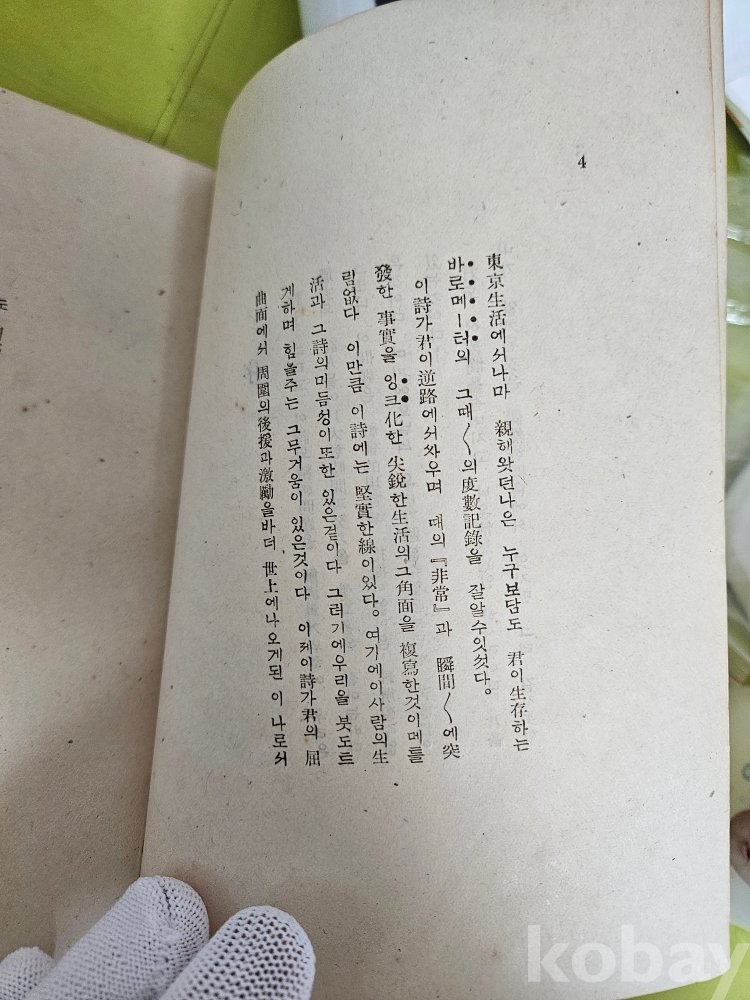 4
東京生活에서나마 親해왓던나은 누구보담도 君이生存하는
바로메ー터의 그때〱의度數記錄을 잘알수잇섯다。
이詩가君이逆路에서싸우며 때의『非常』과 瞬間〱에突
發한 事實을 잉크化한 尖銳한生活의그角面을 複寫한것이메틀
림없다 이만큼 이詩에는 堅實한線이있다。여기에이사람의生
活과 그詩의미듬성이또한 있은걸이다 그러기에우리을 붓도드
게하며 힘을주는 그무거움이 있은것이다 이제이詩가君의 屈
曲面에서 周圍의後援과激勵을바더 世上에나오게된 이 나로서
kobay